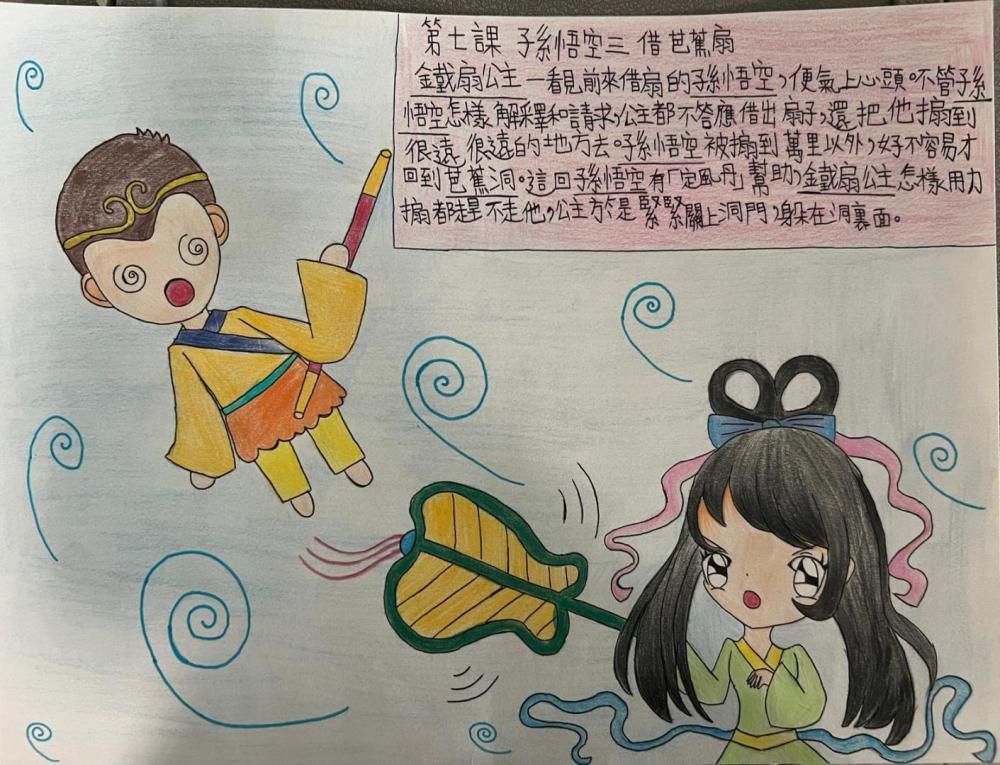 第七課 孫悟空三借芭蕉扇
金鐵扇公主一看見前來借扇的孫悟空,便氣上心頭。不管孫
悟空怎樣解釋和請求,公主都不答應借出扇子,還把他搧到
很遠很遠的地方去。孫悟空被搧到萬里以外,好不容易才
回到芭蕉洞。這回孫悟空有「定風丹」幫助,金鐵扇公主怎樣用力
搧都趕不走他,公主於是緊緊關上洞門,躲在洞裏面。